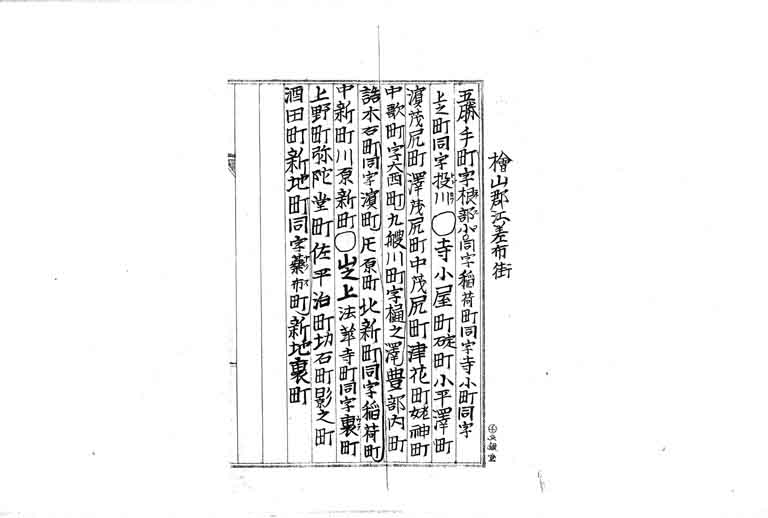 檜山郡江差布街
五勝手町字根部小同字稲荷町同字寺小町同字
上之町同字投川〇寺小屋町碇町小平澤町
濱茂尻町澤茂尻町中茂尻町津花町姥神町
中歌町字大西町九艘川町字楄之澤豊部内町
詰木石町同字濱町片原町北新町同字稲荷町
中新町川原新町〇山之上法華寺町同字裏町
上野町弥陀堂町佐平治町切石町影之町
酒田町新地町同字薬布町新地裏町